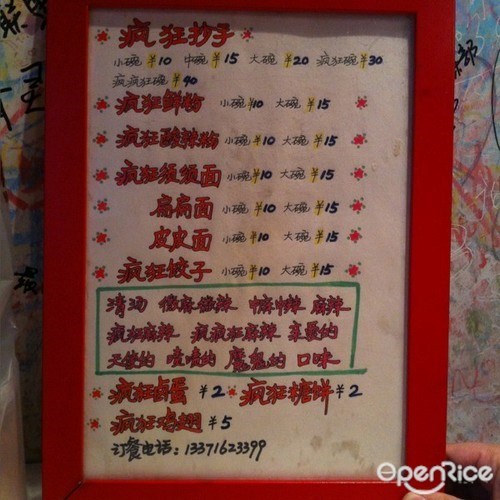 疯狂抄手
小碗 ¥10 中碗 ¥15 大碗 ¥20 疯狂碗 ¥30
疯疯狂碗 ¥40
疯狂鲜粉 小碗 ¥10 大碗 ¥15
疯狂酸辣粉 小碗 ¥10 大碗 ¥15
疯狂须须面 小碗 ¥10 大碗 ¥15
扁扁面 小碗 ¥10 大碗 ¥15
皮皮面 小碗 ¥10 大碗 ¥15
疯狂饺子 小碗 ¥10 大碗 ¥15
清汤 微麻微辣 中麻中辣 麻辣
疯狂麻辣 疯疯狂麻辣 亲爱的
天使的 魔鬼的 口味
疯狂卤蛋 ¥2 疯狂糖饼 ¥2
疯狂鸡翅 ¥5
订餐电话：13371623399
OpenRice